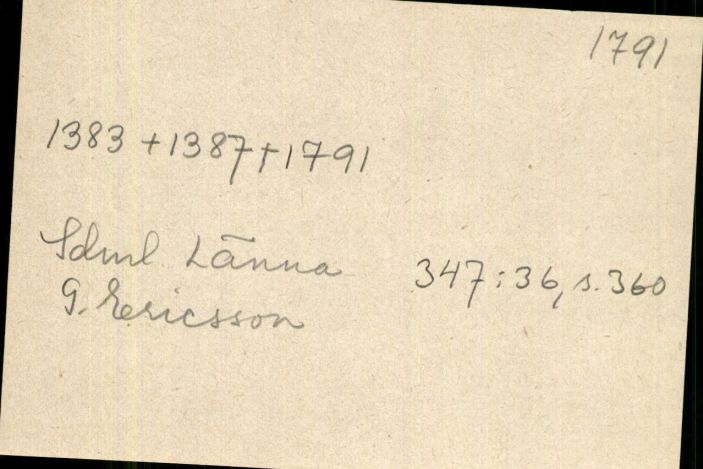 1791
1383 + 1387 + 1791
Sdml Länna 347:36, s. 360
G. Ericsson